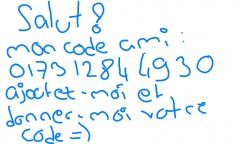 Salut !
mon code ami :
0173 1284 4930
ajoutet-moi et
donner-moi votre
code =)